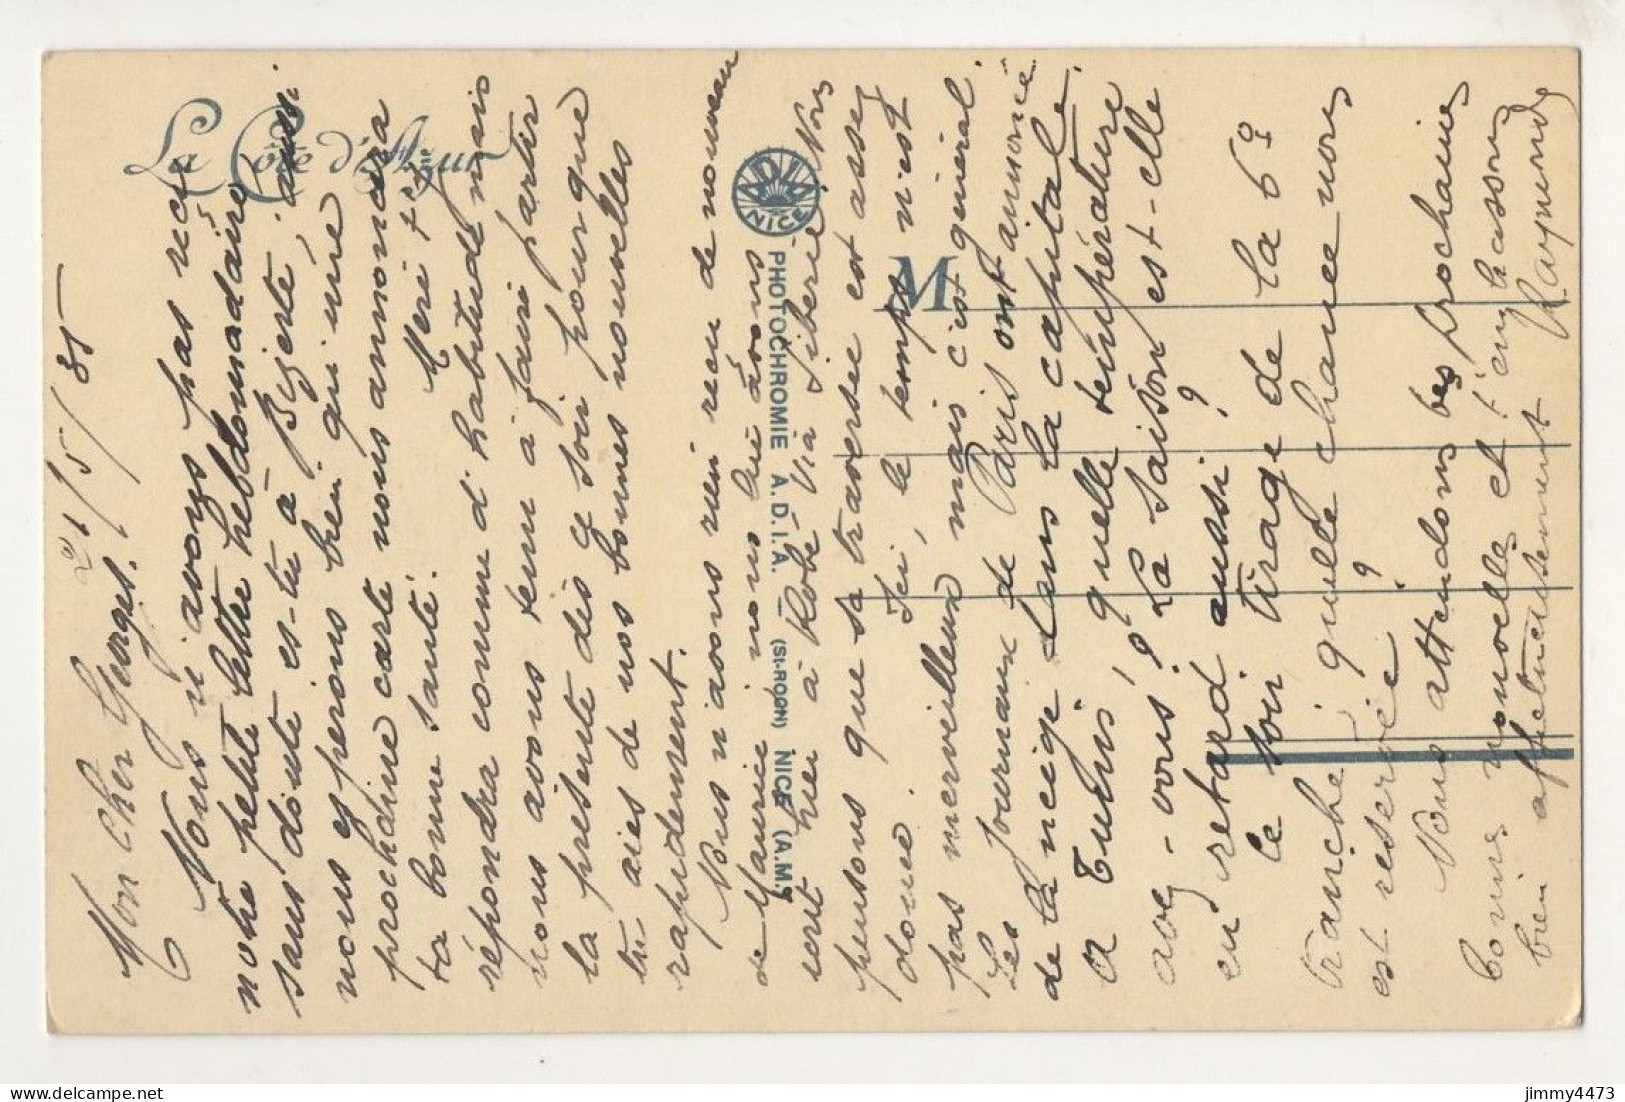 La Côte d'Azur
21/5/35
Mon cher Georges.
Nous n'avons pas reçu
notre petite lettre hebdomadaire
sans doute es-tu à Bizerte, aussi
nous espérons bien qu'une
prochaine carte nous annoncera
ta bonne santé. Mémé t'y
répondra comme d'habitude mais
nous avons tenu à faire partir
la présente dès ce soir pour que
tu aies de nos bonnes nouvelles
rapidement.
Nous n'avons rien reçu de nouveau
de Maurice nous lui avons
écrit hier à Kobé via Sibérie. Nous
pensons que sa traversée est assez
douce. Ici, le temps n'est
pas merveilleux mais c'est général.
Les journaux de Paris ont annoncé
de la neige dans la capitale.
A Tunis, quelle température
avez-vous? La saison est-elle
en retard aussi?
Ce soir tirage de la 6e
tranche, quelle chance nous
est réservée?
Nous attendons tes prochaines
bonnes nouvelles et t'embrassons
bien affectueusement Raymonde
ADIA
NICE
PHOTOCHROMIE A.D.I.A. (St-ROCH) NICE (A.M.)
M
jimmy4473